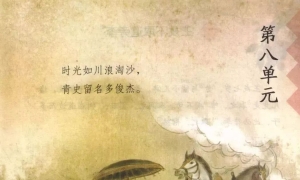 第八单元
时光如川浪淘沙，
青史留名多俊杰。